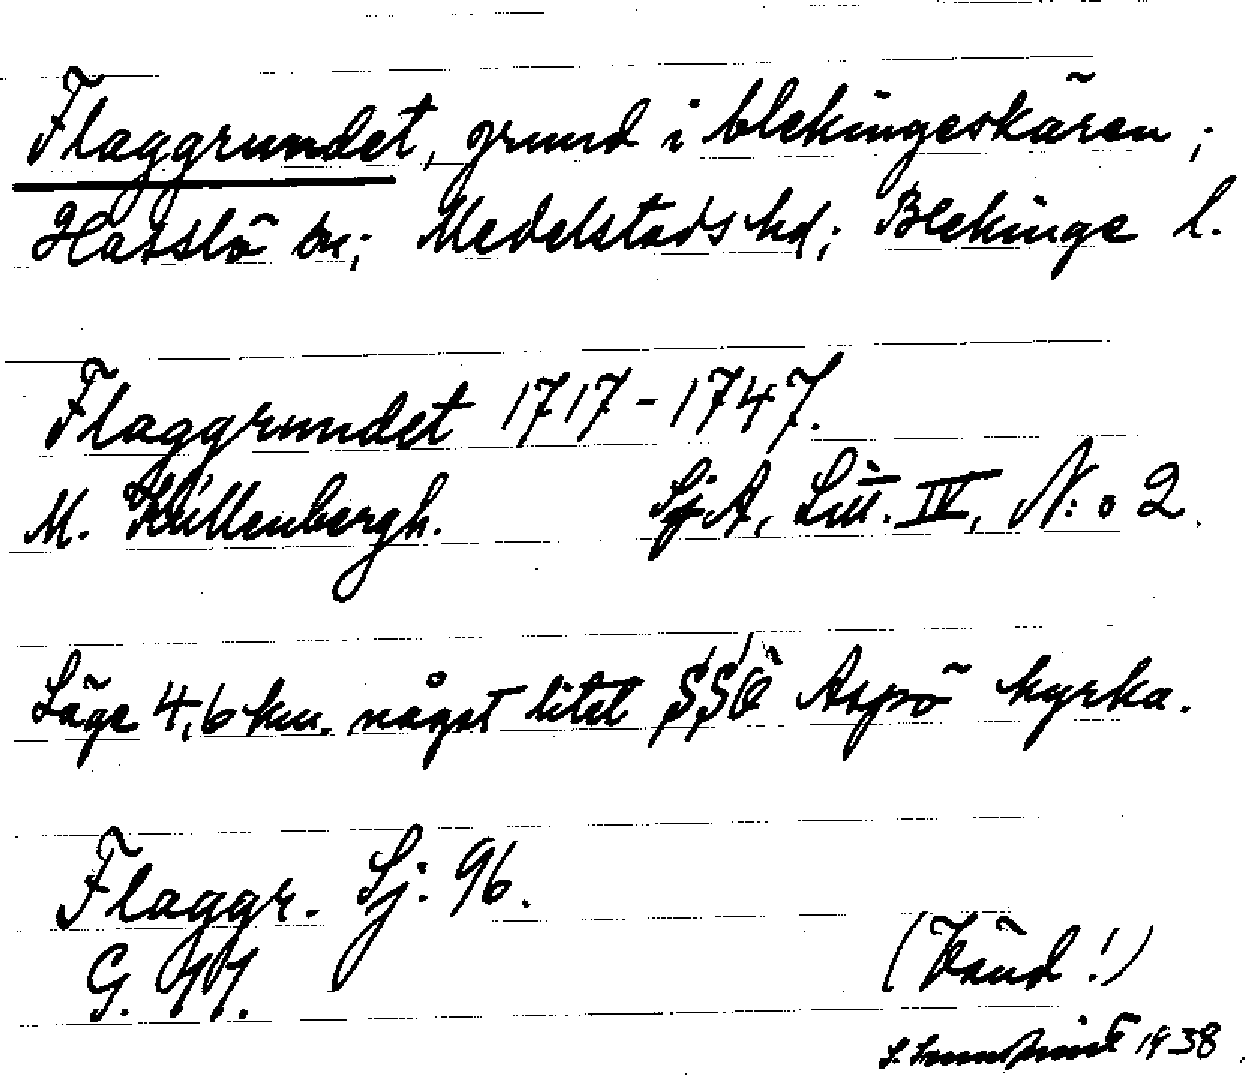 Flaggrundet, grund i blekingeskären;
Hasslö sn; Medelstads hd; Blekinge l.
Flaggrundet 1717-1747.
M. Källenbergh. SjA, Litt. IV, N:o 2.
Läge 4,6 km. något litet SSÖ Aspö kyrka.
Flaggr. Sj. 96.
G.
(Vänd!)
1938